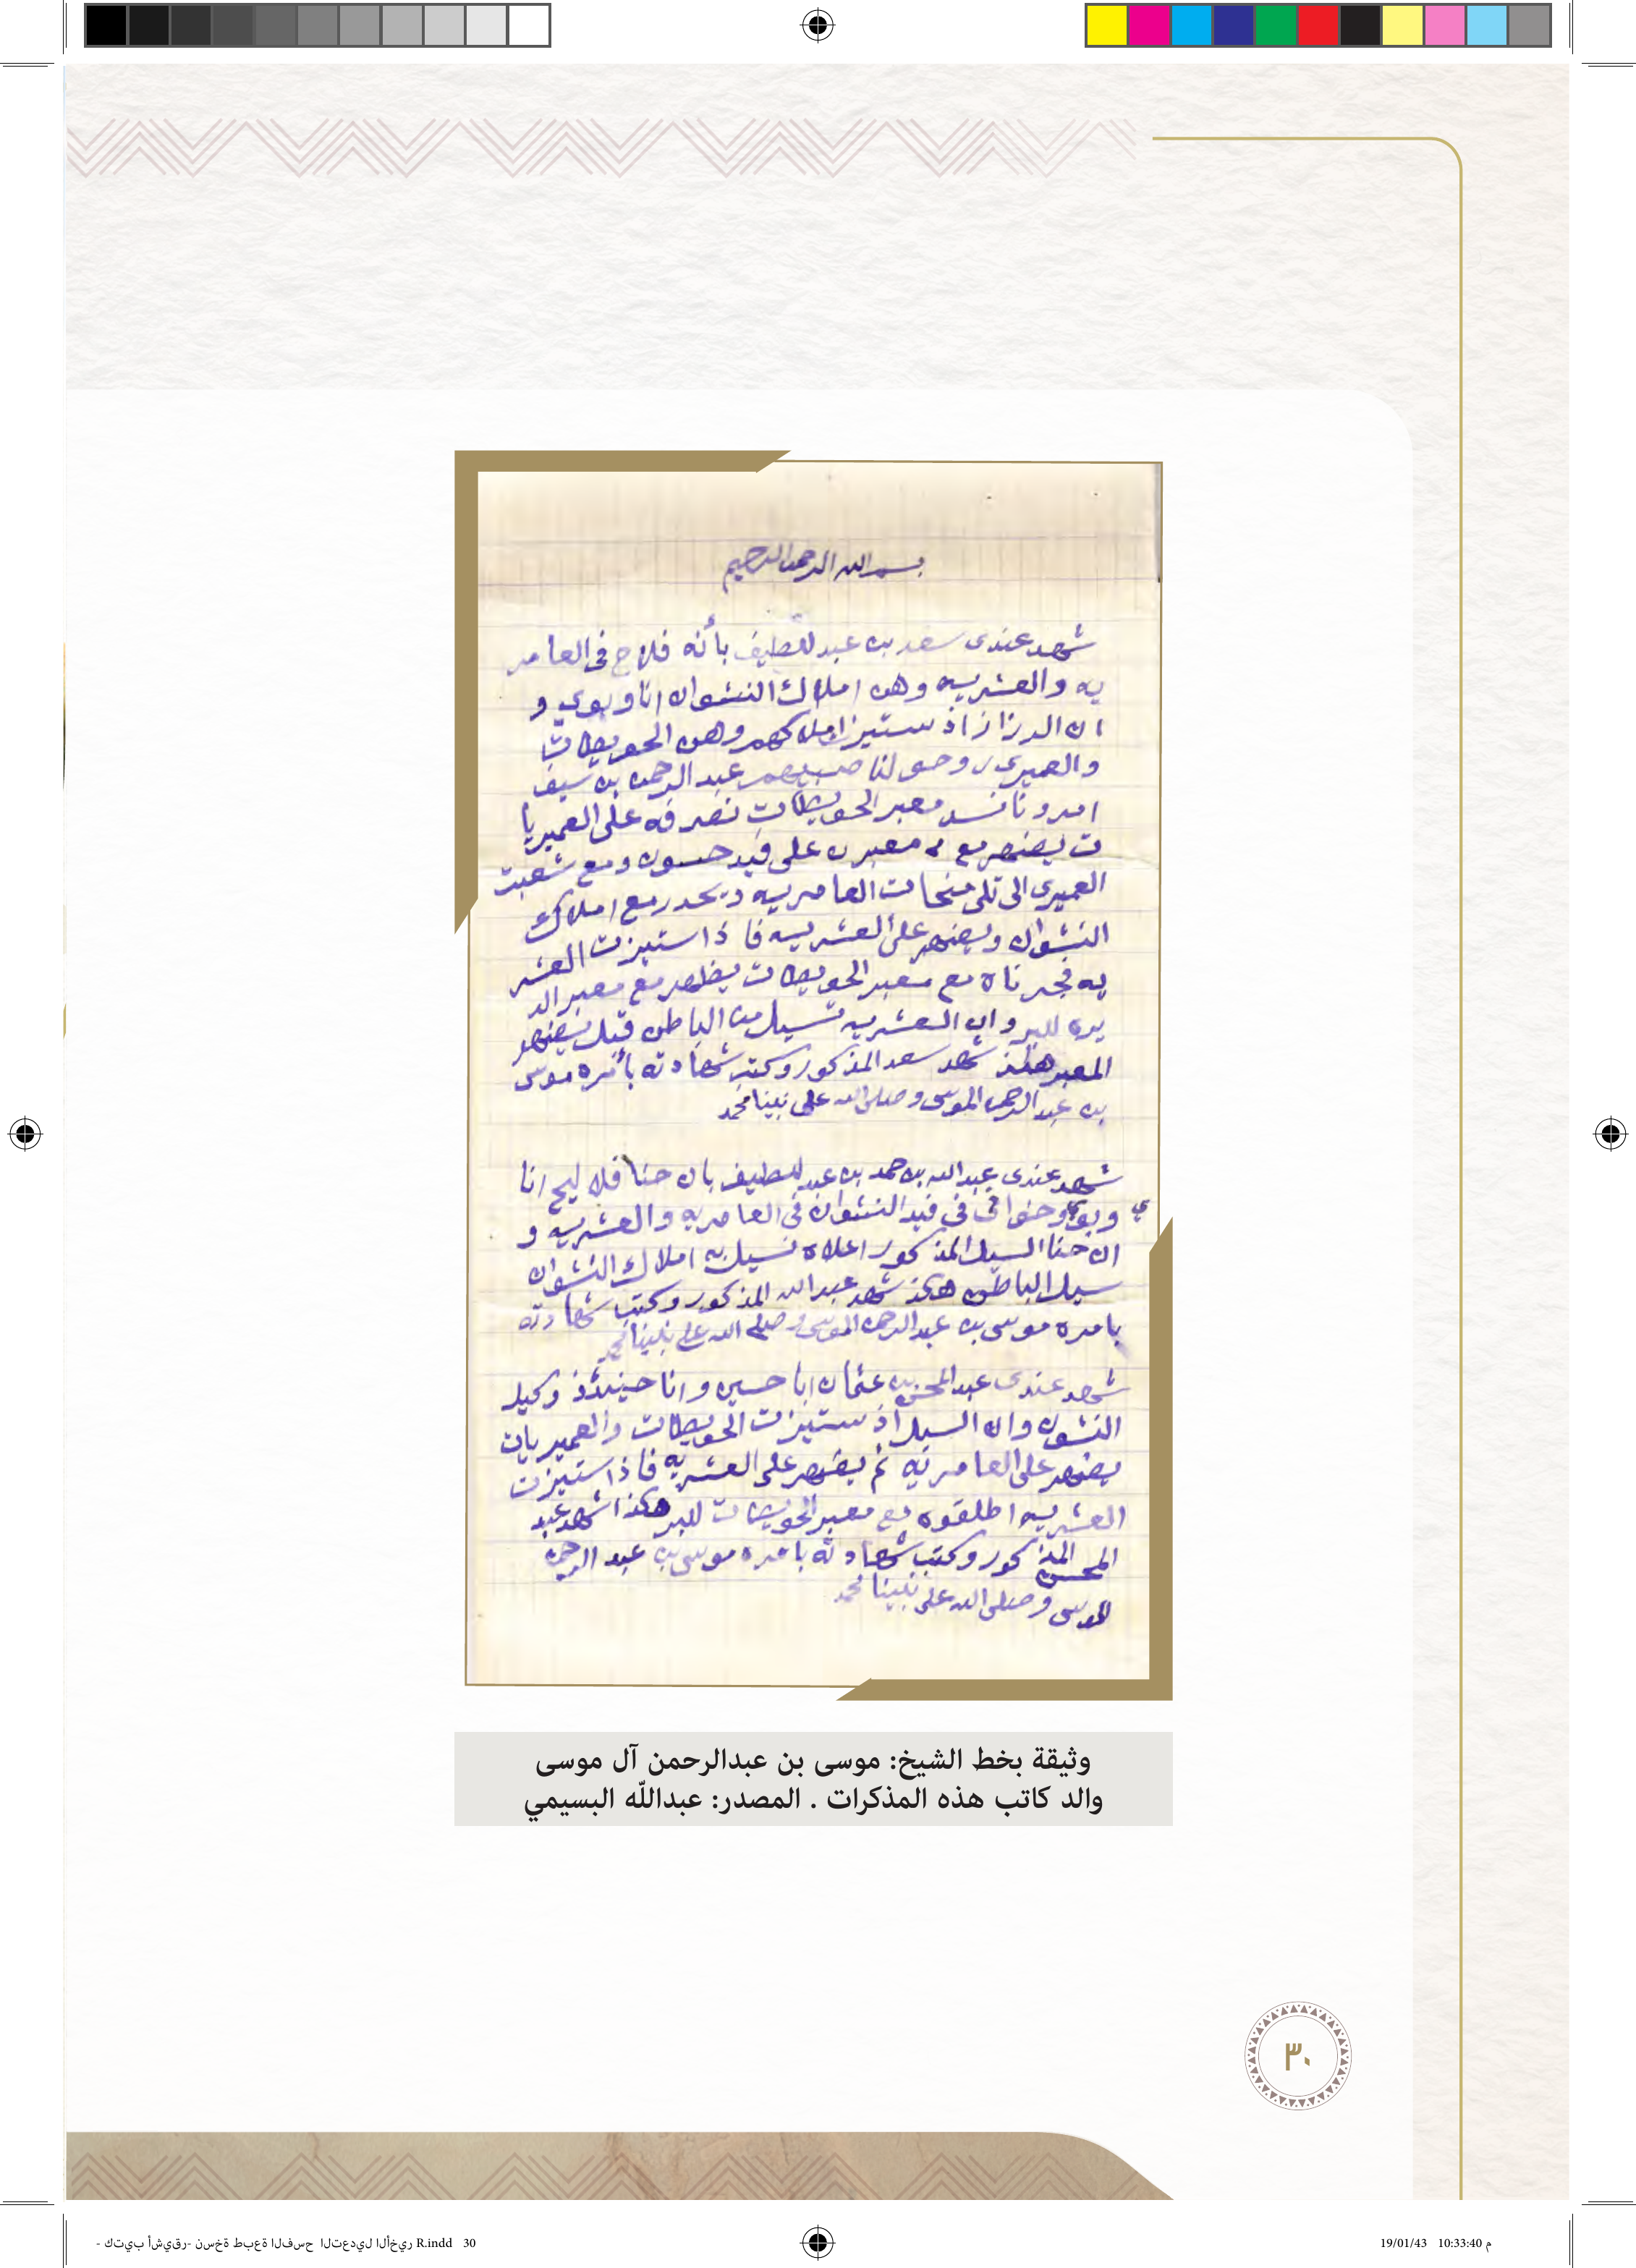 بسم الله الرحمن الرحيم
شهد عندى سعد بن عبد للطيف بأنه فلاح فى العامر
يه والعشريه وهن املاك النشوان انا وبوي و
ان الدرزا زاذ ستيزاملاكهم وهن الحويطات
والعميرى روحو لنا صبيهم عبد الرحمن بن سيف
امرونا نسد معبر الحويطات نصرفه على العميريا
ت يضهر مع معبرن على قيد حسون ومع شعبت
العميرى الى تلى منحات العامريه ويحدر مع املاك
النشوان ويضهر على العشريه فا ذا ستيزت العشر
يه فجرناه مع معبر الحويطات يظهر مع معبر الد
يره للبر وان العشريه تسيل من الباطن قبل يضهر
المعبر هكذ شهد سعد المذكور وكتب شهادته بأمره موسى
بن عبد الرحمن الموسى وصلى الله على نبينا محمد
شهد عندى عبدالله بن حمد بن عبد للطيف بان حنا فلاليح انا
وبوي وخوا فى قيد النشوان فى العامريه والعشريه و
ان حنا السيل المذكور اعلاه نسيل به املاك النشوان
سيل الباطن هكذ شهد عبدالله المذكور وكتب شهادته
بامره موسى بن عبدالرحمن الموسى وصلى الله على نبينا محمد
شهد عندى عبدالمحسن بن عثمان ابا حسين وانا حينئذ وكيل
النشون وان السيل اذ ستيزت الحويطات والعميريات
يضهر على العامريه ثم يضهر على العشريه فاذا ستيزت
العشريه اطلقوه مع معبر الحويطات للبر هكذا شهد عبد
المحسن المذكور وكتب شهادته بامره موسى بن عبد الرحمن
الموسى وصلى الله على نبينا محمد
وثيقة بخط الشيخ: موسى بن عبدالرحمن آل موسى
والد كاتب هذه المذكرات . المصدر: عبدالله البسيمي
٣٠
كتيب أشيقر- نسخة طبعة الفسح التعديل الأخير - R.indd 30
19/01/43 10:33:40 م